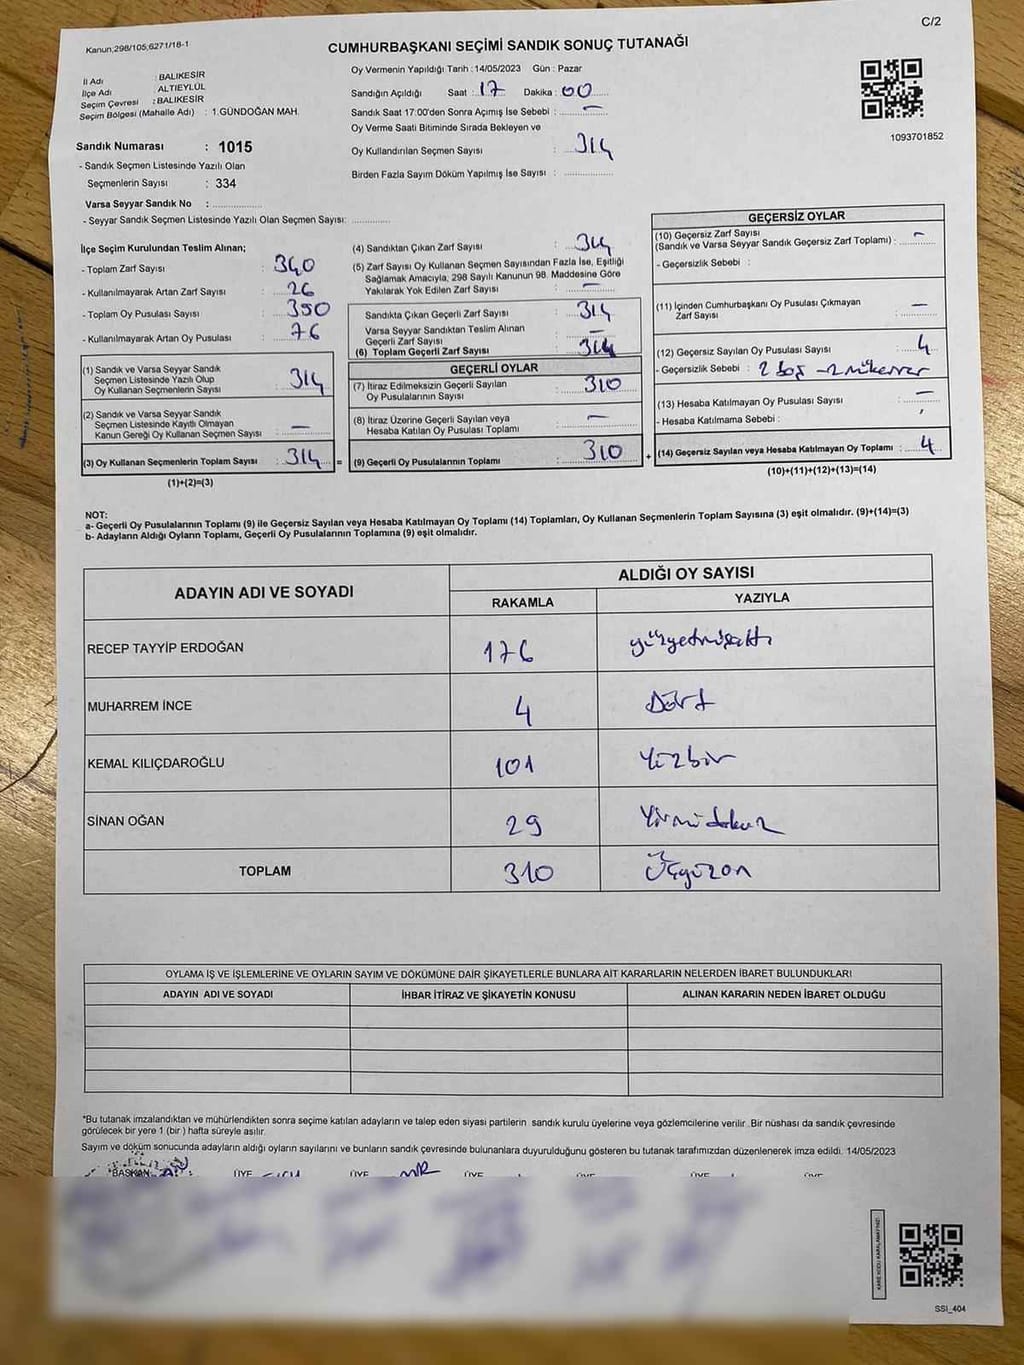 C/2
Kanun;298/105;6271/18-1
CUMHURBAŞKANI SEÇİMİ SANDIK SONUÇ TUTANAĞI
İl Adı : BALIKESİR
İlçe Adı : ALTIEYLÜL
Seçim Çevresi : BALIKESİR
Seçim Bölgesi (Mahalle Adı) : 1.GÜNDOĞAN MAH.
Oy Vermenin Yapıldığı Tarih : 14/05/2023 Gün : Pazar
Sandığın Açıldığı Saat : 17 Dakika : 00
Sandık Saat 17:00'den Sonra Açımış İse Sebebi : –
Oy Verme Saati Bitiminde Sırada Bekleyen ve
Oy Kullandırılan Seçmen Sayısı : 314
Birden Fazla Sayım Döküm Yapılmış İse Sayısı :
1093701852
Sandık Numarası : 1015
- Sandık Seçmen Listesinde Yazılı Olan
Seçmenlerin Sayısı : 334
Varsa Seyyar Sandık No :
- Seyyar Sandık Seçmen Listesinde Yazılı Olan Seçmen Sayısı:
İlçe Seçim Kurulundan Teslim Alınan;
- Toplam Zarf Sayısı : 340
- Kullanılmayarak Artan Zarf Sayısı : 26
- Toplam Oy Pusulası Sayısı : 350
- Kullanılmayarak Artan Oy Pusulası : 76
(1) Sandık ve Varsa Seyyar Sandık
Seçmen Listesinde Yazılı Olup
Oy Kullanan Seçmenlerin Sayısı : 314
(2) Sandık ve Varsa Seyyar Sandık
Seçmen Listesinde Kayıtlı Olmayan
Kanun Gereği Oy Kullanan Seçmen Sayısı : –
(3) Oy Kullanan Seçmenlerin Toplam Sayısı : 314 =
(1)+(2)=(3)
(4) Sandıktan Çıkan Zarf Sayısı : 314
(5) Zarf Sayısı Oy Kullanan Seçmen Sayısından Fazla İse, Eşitliği
Sağlamak Amacıyla, 298 Sayılı Kanunun 98. Maddesine Göre
Yakılarak Yok Edilen Zarf Sayısı : –
Sandıkta Çıkan Geçerli Zarf Sayısı : 314
Varsa Seyyar Sandıktan Teslim Alınan
Geçerli Zarf Sayısı : –
(6) Toplam Geçerli Zarf Sayısı : 314
GEÇERLİ OYLAR
(7) İtiraz Edilmeksizin Geçerli Sayılan
Oy Pusulalarının Sayısı : 310
(8) İtiraz Üzerine Geçerli Sayılan veya
Hesaba Katılan Oy Pusulası Toplamı : –
(9) Geçerli Oy Pusulalarının Toplamı : 310 +
GEÇERSİZ OYLAR
(10) Geçersiz Zarf Sayısı
(Sandık ve Varsa Seyyar Sandık Geçersiz Zarf Toplamı) : –
- Geçersizlik Sebebi :
(11) İçinden Cumhurbaşkanı Oy Pusulası Çıkmayan
Zarf Sayısı : –
(12) Geçersiz Sayılan Oy Pusulası Sayısı : 4
- Geçersizlik Sebebi : 2 boş – 2 mükerrer
(13) Hesaba Katılmayan Oy Pusulası Sayısı : –
- Hesaba Katılmama Sebebi :
(14) Geçersiz Sayılan veya Hesaba Katılmayan Oy Toplamı : 4
(10)+(11)+(12)+(13)=(14)
NOT:
a- Geçerli Oy Pusulalarının Toplamı (9) ile Geçersiz Sayılan veya Hesaba Katılmayan Oy Toplamı (14) Toplamları, Oy Kullanan Seçmenlerin Toplam Sayısına (3) eşit olmalıdır. (9)+(14)=(3)
b- Adayların Aldığı Oyların Toplamı, Geçerli Oy Pusulalarının Toplamına (9) eşit olmalıdır.
ADAYIN ADI VE SOYADI ALDIĞI OY SAYISI
RAKAMLA YAZIYLA
RECEP TAYYİP ERDOĞAN 176 yüzyetmişaltı
MUHARREM İNCE 4 Dört
KEMAL KILIÇDAROĞLU 101 Yüzbir
SİNAN OĞAN 29 Yirmidokuz
TOPLAM 310 Üçyüzon
OYLAMA İŞ VE İŞLEMLERİNE VE OYLARIN SAYIM VE DÖKÜMÜNE DAİR ŞİKAYETLERLE BUNLARA AİT KARARLARIN NELERDEN İBARET BULUNDUKLARI
ADAYIN ADI VE SOYADI İHBAR İTİRAZ VE ŞİKAYETİN KONUSU ALINAN KARARIN NEDEN İBARET OLDUĞU
*Bu tutanak imzalandıktan ve mühürlendikten sonra seçime katılan adayların ve talep eden siyasi partilerin sandık kurulu üyelerine veya gözlemcilerine verilir. Bir nüshası da sandık çevresinde
görülecek bir yere 1 (bir) hafta süreyle asılır.
Sayım ve döküm sonucunda adayların aldığı oyların sayılarını ve bunların sandık çevresinde bulunanlara duyurulduğunu gösteren bu tutanak tarafımızdan düzenlenerek imza edildi. 14/05/2023
BAŞKAN ÜYE ÜYE ÜYE ÜYE ÜYE ÜYE
SSI_404